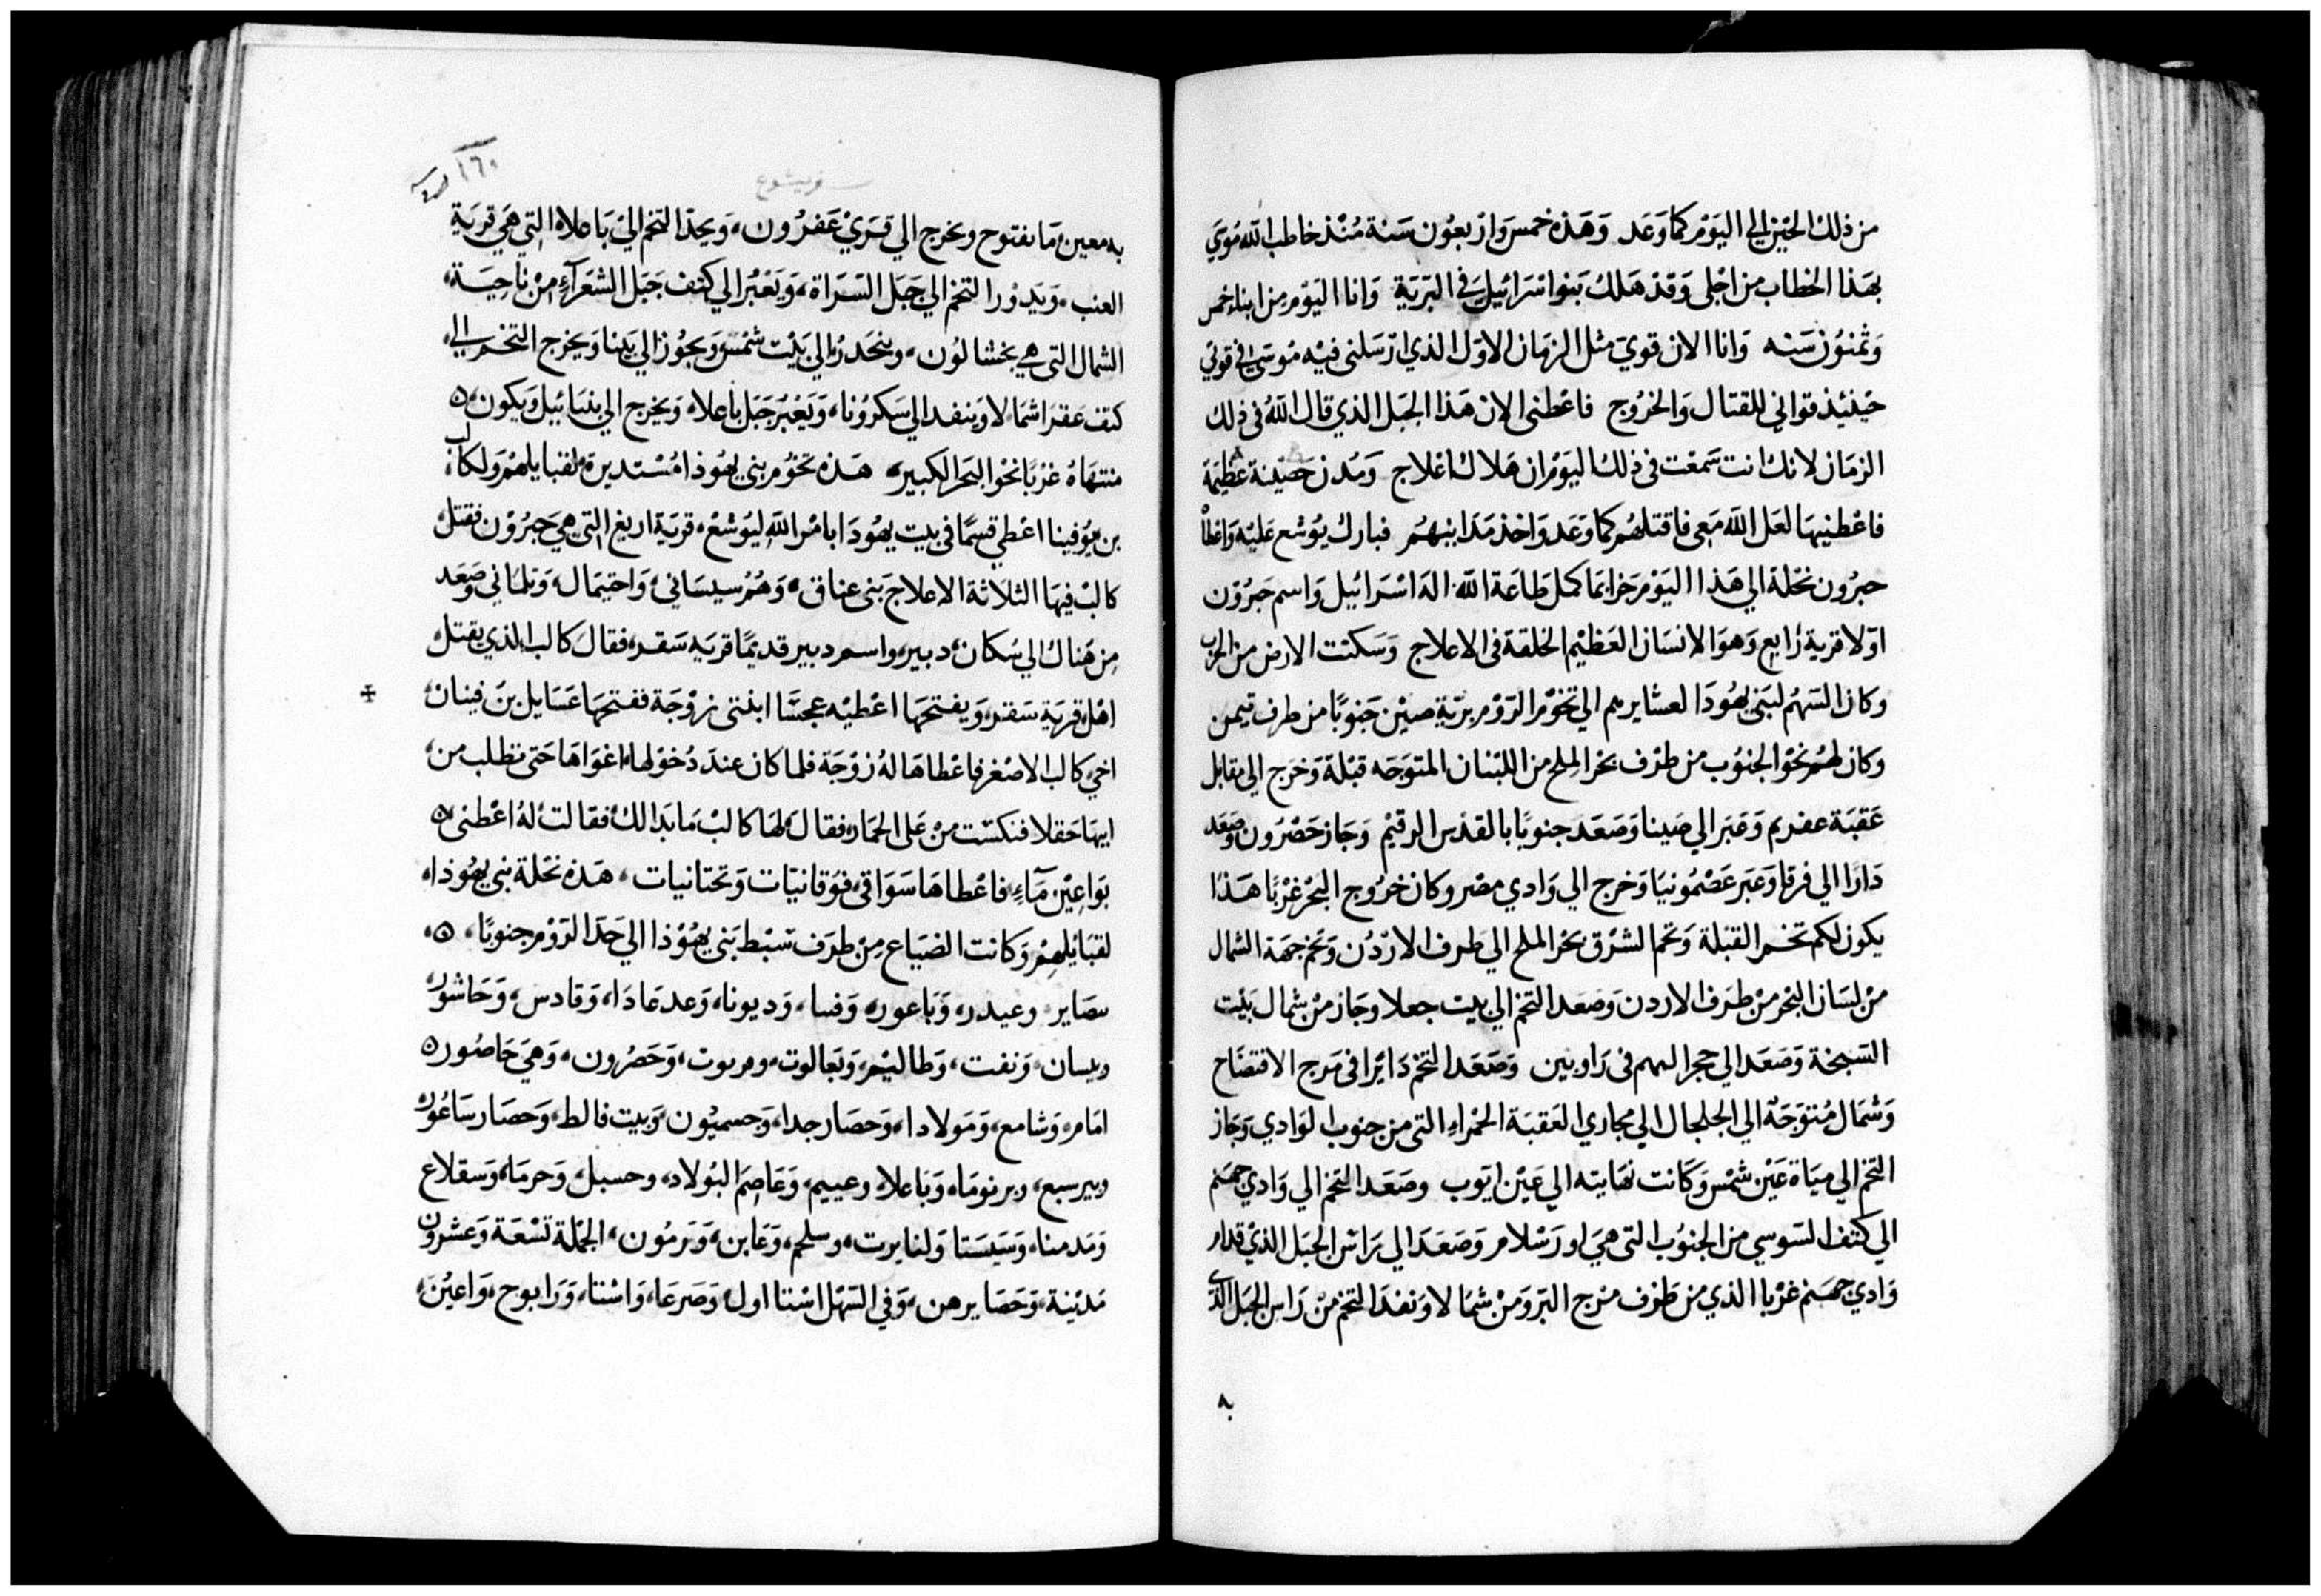 من ذلك الحين الي اليوم كما وعد وهذه خمس واربعون سنة منذ خاطب الله موسي
بهذا الخطاب من اجلى وقد هلك بنوا سرائيل في البرية وانا اليوم من ابناء خمس
وثمنون سنه وانا الان قوي مثل الزمان الاول الذي ارسلنى فيه موسي في قوتي
حينئذ قواني للقتال والخروج فاعطنى الان هذا الجبل الذي قال الله فى ذلك
الزمان لانك انت سمعت فى ذلك اليوم ان هلاك اعلاج ومدن حصينة عظيمة
فاعطنيها لعل الله معى فاقتلهم كما وعد واخذ مدابنهم فبارك يوشع عليه واعطا
حبرون نحلة الي هذا اليوم جزا بما كمل طاعة الله اله اسرائيل واسم حبرون
اولا قرية رابع وهو الانسان العظيم الخلقة فى الاعلاج وسكنت الارض من الحرب
وكان السهم لبنى يهودا لعشايرهم الي تخوم الروم برية صين جنوبا من طرف تيمن
وكان لهم نحو الجنوب من طرف بحر الملح من اللبنان المتوجه قبلة وخرج الي مقابل
عقبة عفريم وعبر الي صينا وصعد جنوبا بالقدس الرقيم وجاز حضرون وصعد
دارا الي فرقا وعبر عضمونيا وخرج الي وادي مصر وكان خروج البحر غربا هذا
يكون لكم تخم القبلة وتخم الشرق بحر الملح الي طرف الاردن وتخم جهة الشمال
من لسان البحر من طرف الاردن وصعد التخم الي بيت جعلا وجاز من شمال بيت
السبخة وصعد الي حجر الهم فى راوبين وصعد التخم دايرا في مرج الافتضاح
وشمال متوجه الي الجلجال الي مجاري العقبة الحمراء التى من جنوب الوادي وجاز
التخم الي مياة عين شمس وكانت نهايته الي عين ايوب وصعد التخم الي وادي جهنم
الي كتف السوسي من الجنوب التى هي اورشلام وصعد الي راس الجبل الذي قدام
وادي جهنم غربا الذي من طرف مرج البر ومن شمالا ونفد التخم من راس الجبل الذى
به
١٦٠
سفر يشوع
به معين ما نفتوح ويخرج الي قري عفرون، ويحد التخم الي باعلاه التي هي قرية
العنب، ويدور التخم الي جبل السراة، ويعبر الي كتف جبل الشعرآء من ناحية
الشمال التى هي بخشالون، وينحدر الي بيت شمس ويجوز الي يمنا ويخرج التخم الي
كتف عقرا شمالا وينفد الي سكرونا، ويعبر جبل باعلا، ويخرج الي ينبائيل ويكون
منتهاه غربا نحو البحر الكبير، هذه تخوم بنى يهوذا مستديرة لقبايلهم ولكالب
بن يوفينا اعطي قسما فى بيت يهودا بامر الله ليوشع، قرية اربع التي هي حبرون فقتل
كالب فيها الثلاثة الاعلاج بنى عناق، وهم سيساني، واحيمال، وتلمانى وصعد
من هناك الي سكان دبير، واسم دبير قديما قريه سقر، فقال كالب الذي يقتل
اهل قرية سقر، ويفتحها اعطيه عجسا ابنتى زوجة ففتحها عسايل بن فينان
اخى كالب الاصغر فاعطاها له زوجة فلما كان عند دخولها اغواها حتى تطلب من
ابيها حقلا فنكست من على الحمار، فقال لها كالب ما بدا لك فقالت له اعطنى
بواعين مآء، فاعطاها سواقى فوقانيات وتحتانيات، هذه نحلة بنى يهوذا،
لقبايلهم وكانت الضياع من طرف سبط بنى يهوذا الي حد الروم جنوبا،
بصاير وعيدر، وباعور، وفسا، وديونا، وعد عادا، وقادس، وحاشور،
وبسان، ونفت، وطاليم، وبعالوت، ومربوت، وحصرون، وهي حاصور
امام، وشامع، ومولادا، وحصار جدا، وحسميون، وبيت فالط، وحصار ساعور
وبير سبع، وبرنوما، وباعلا، وعييم، وعاصم البولاد، وحسبل، وحرما، وسقلاع
ومدمنا، وسيستا ولنايرت، وسلحم، وعابن، ورمون، الجملة تسعة وعشرون
مدينة، وحصايرهن، وفي السهل استا اول، وصرعا، واشنا، ورابوح، واعين،